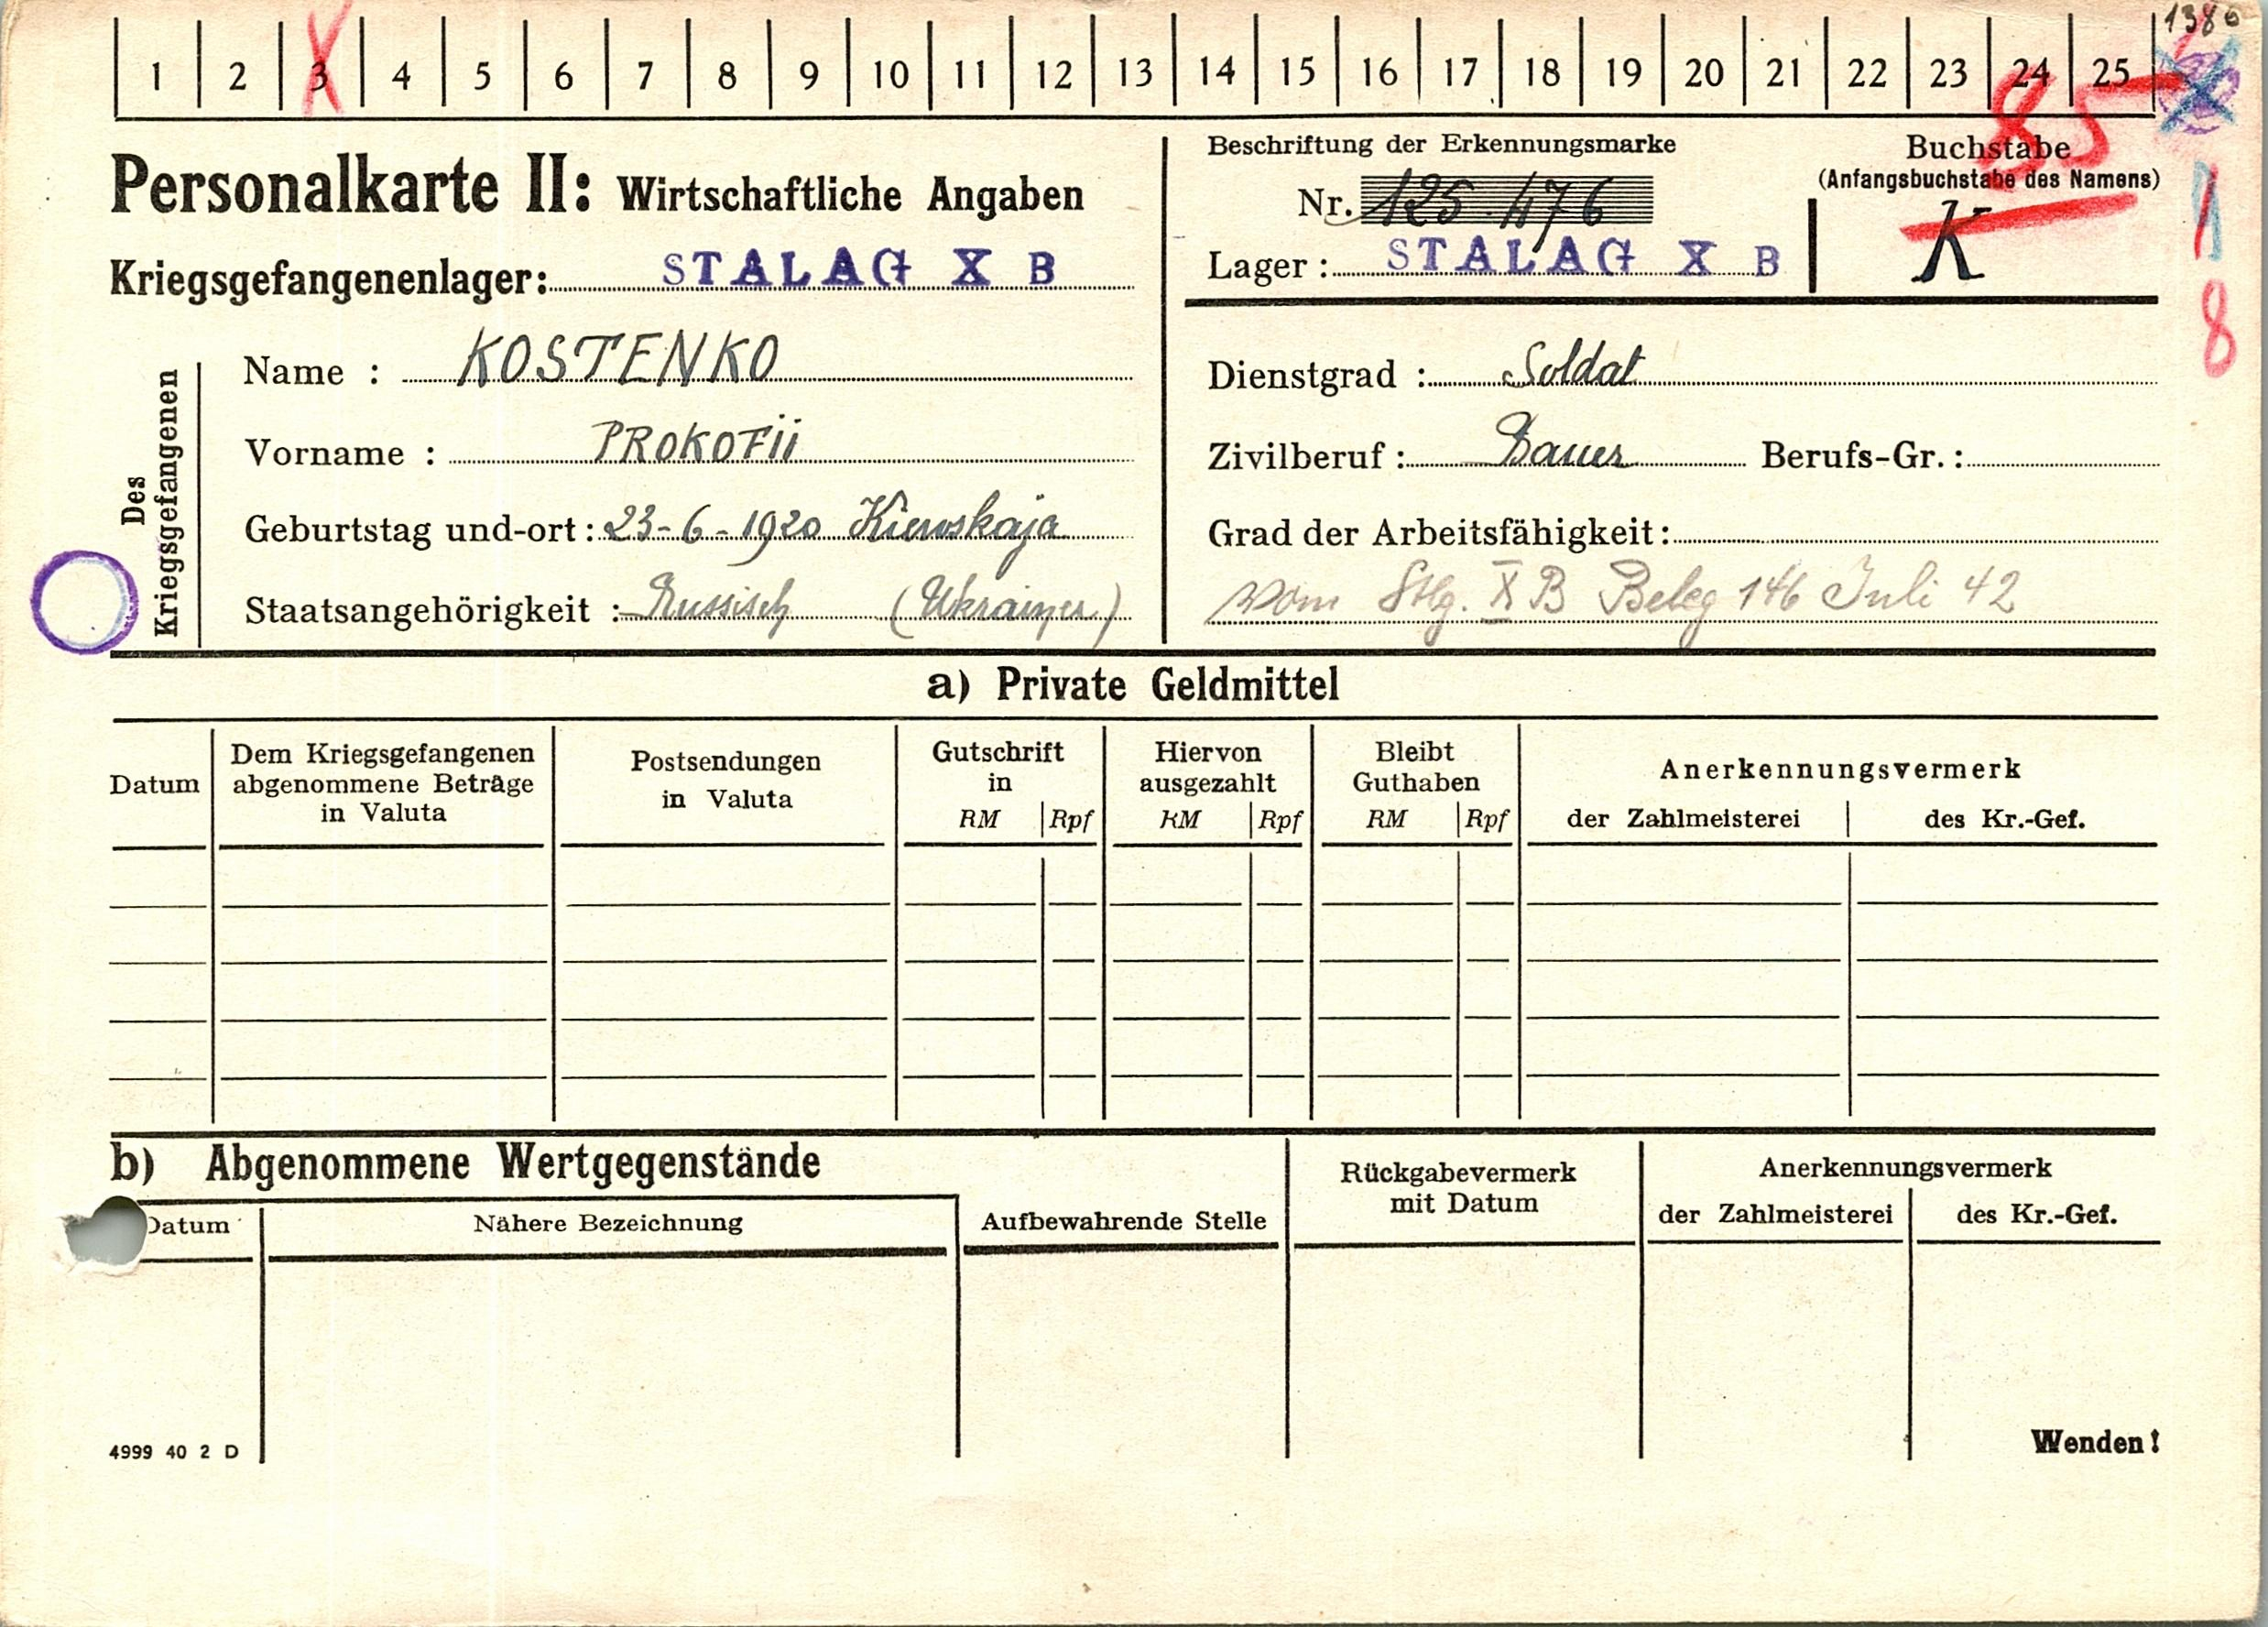 1 2 3 4 5 6 7 8 9 10 11 12 13 14 15 16 17 18 19 20 21 22 23 24 25
1386
85
Personalkarte II: Wirtschaftliche Angaben
Kriegsgefangenenlager: STALAG X B
Beschriftung der Erkennungsmarke
Nr. 125.476
Lager: STALAG X B
Buchstabe
(Anfangsbuchstabe des Namens)
K
1
8
Des
Kriegsgefangenen
Name : KOSTENKO
Vorname : PROKOFII
Geburtstag und-ort: 23-6-1920 Kiewskaja
Staatsangehörigkeit : Russisch (Ukrainer)
Dienstgrad : Soldat
Zivilberuf : Bauer Berufs-Gr. :
Grad der Arbeitsfähigkeit:
vom Stlg. X B Beleg 146 Juli 42
a) Private Geldmittel
Datum
Dem Kriegsgefangenen
abgenommene Beträge
in Valuta
Postsendungen
in Valuta
Gutschrift
in
RM Rpf
Hiervon
ausgezahlt
RM Rpf
Bleibt
Guthaben
RM Rpf
Anerkennungsvermerk
der Zahlmeisterei des Kr.-Gef.
b) Abgenommene Wertgegenstände
Datum
Nähere Bezeichnung
Aufbewahrende Stelle
Rückgabevermerk
mit Datum
Anerkennungsvermerk
der Zahlmeisterei des Kr.-Gef.
4999 40 2 D
Wenden!